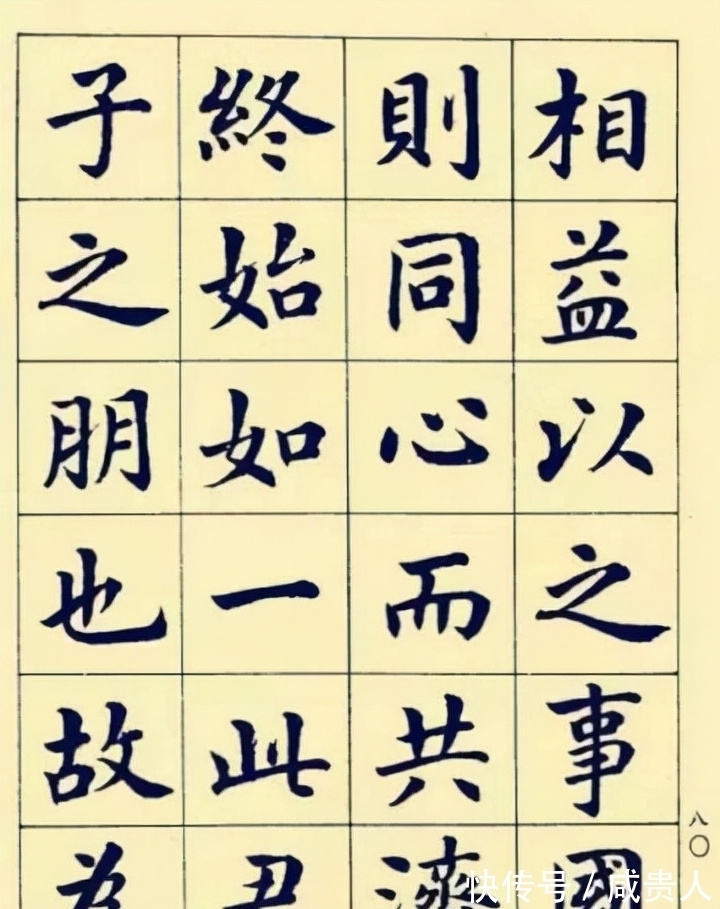 相益以之事國
則同心而共濟
終始如一此君
子之朋也故為
八〇
快传号 / 咸贵人